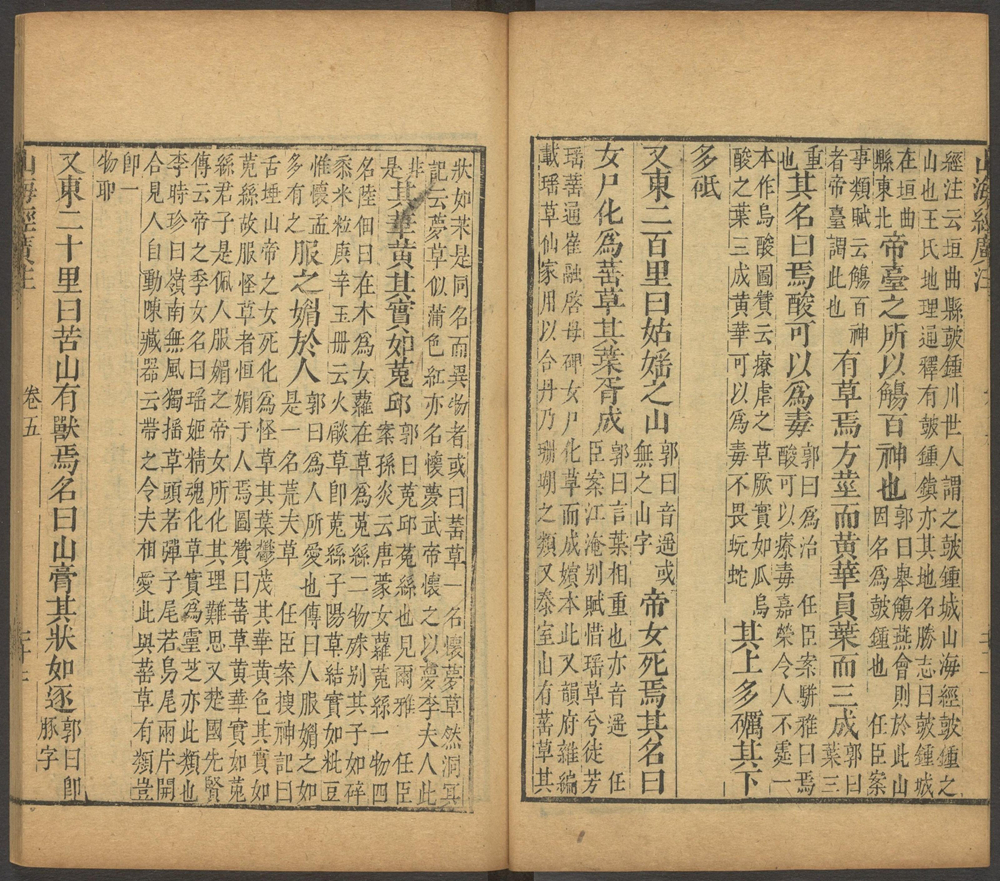 經注云垣曲縣鼓鍾川世人謂之鼓鍾城山海經鼓鍾之
山也王氏地理通釋有鼓鍾鎮亦其地名勝志曰鼓鍾城
在垣曲
縣東北
帝臺之所以觴百神也
郭曰舉觴燕會則於此山
因名為鼓鍾也 任臣案
事類賦云觴百神
者帝臺謂此也
有草焉方莖而黃華員葉而三成
郭曰
葉三
重
也
其名曰焉酸可以為毒
郭曰為治 任臣案駢雅曰焉
酸可以療毒嘉榮令人不霆一
本作烏酸圖贊云療瘧之草厥實如瓜烏
酸之葉三成黃華可以為毒不畏蚖蛇
其上多礪其下
多砥
又東二百里曰姑媱之山
郭曰音遥或
無之山字
帝女死焉其名曰
女尸化為䔄草其葉胥成
郭曰言葉相重也亦音遥 任
臣案江淹别賦惜瑶草兮徒芳
瑶䔄通崔融啓母碑女尸化草而成嬪本此又韻府雜編
載瑶草仙家用以合丹乃珊瑚之類又泰室山有䔄草其
狀如荣是同名而異物者或曰䔄草一名懷夢草然洞冥
記云夢草似蒲色紅亦名懷夢武帝懷之以夢李夫人此
非
是
其華黃其實如菟邱
郭曰菟邱菟絲也見爾雅 任臣
案孫炎云唐蒙女蘿菟絲一物四
名陸佃曰在木為女蘿在草為菟絲二物殊别其子如碎
黍米粒庚辛玉册云火燄草卽菟絲子陽草結實如秕豆
惟懷孟
多有之
服之媚於人
郭曰為人所愛也傳曰人服媚之如
是一名荒夫草 任臣案搜神記曰
舌埵山帝之女死化為怪草其葉鬱茂其華黃色其實如
菟絲故服怪草者恒媚于人焉圖贊曰䔄草黃華實如菟
絲君子是佩人服媚之帝女所化其理難思又楚國先賢
傳云帝之季女名曰瑶姬精魂化草實為靈芝亦此類也
李時珍曰嶺南無風獨摇草頭若彈子尾若鳥尾兩片開
合見人自動陳藏器云帶之令夫相愛此與䔄草有類豈
卽一
物耶
又東二十里曰苦山有獸焉名曰山膏其狀如逐
郭曰卽
豚字
山海經廣注
卷五